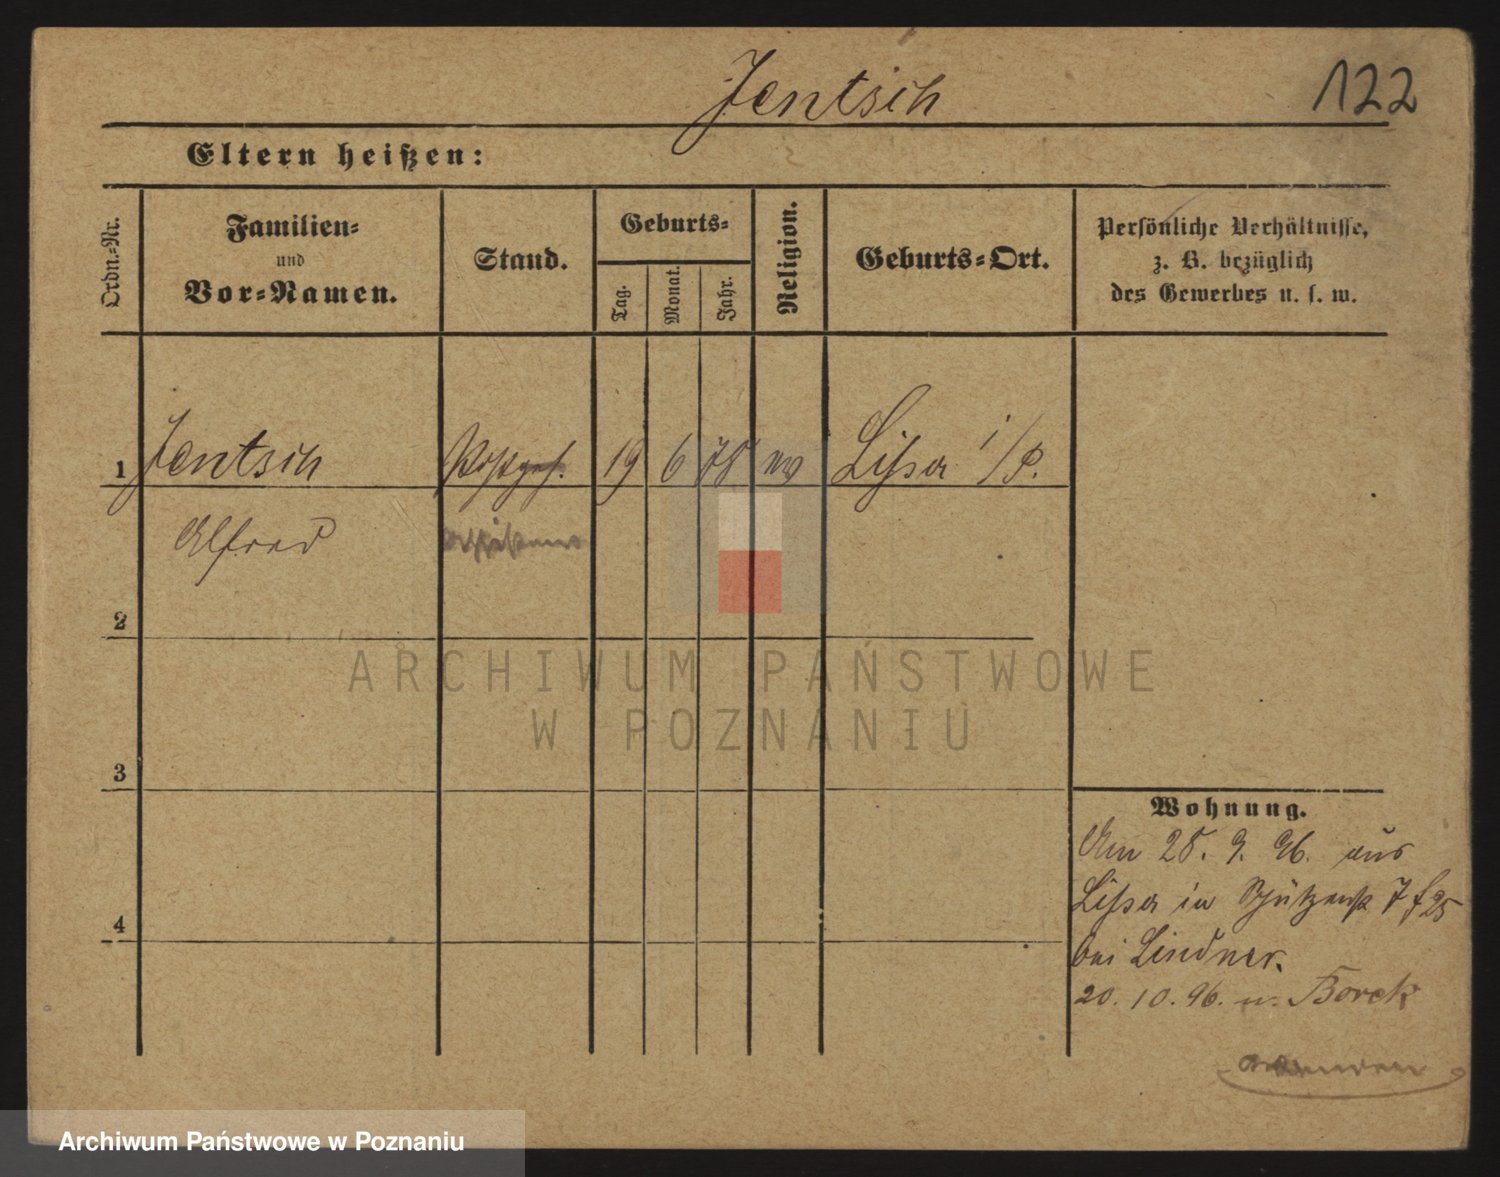 Jentsch
122
Eltern heißen:
Ordn.-Nr.
Familien-
und
Vor-Namen.
Stand.
Geburts-
Tag.
Monat.
Jahr.
Religion.
Geburts-Ort.
Persönliche Verhältnisse,
z. B. bezüglich
des Gewerbes u. s. w.
1 Jentsch Postgeh. 19 6 78 ev Lissa i/P.
Alfred
2
ARCHIWUM PAŃSTWOWE
W POZNANIU
3
4
Wohnung.
Am 28. 9. 96. aus
Lissa in Schützenstr 7
bei Lindner.
20. 10. 96. n. Borek
Archiwum Państwowe w Poznaniu